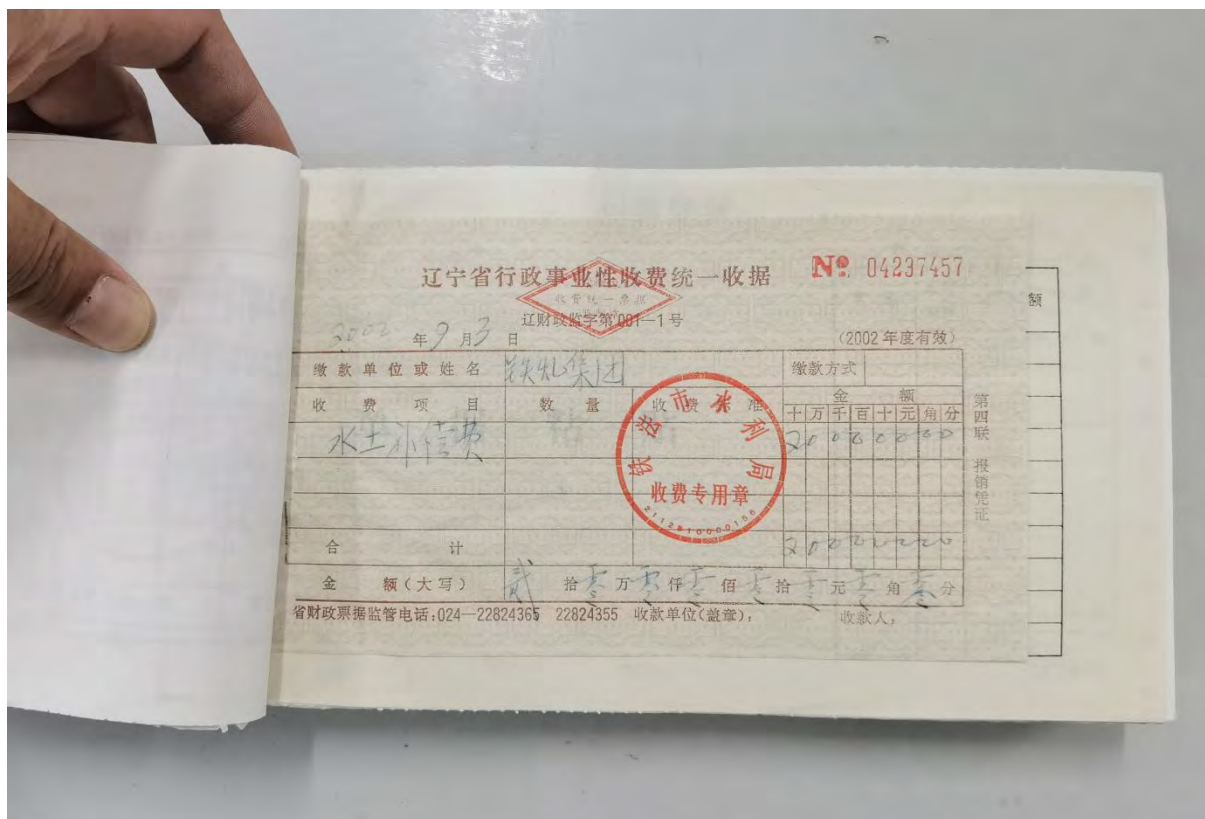 辽宁省行政事业性收费统一收据 № 04237457
收费统一票据
辽财政监字第001—1号
2002年9月3日 (2002年度有效)
缴款单位或姓名 铁煤集团 缴款方式
收费项目 数量 收费标准 金额
十万千百十元角分
水土补偿费 20000000
合计 20000000
金额(大写) 贰拾零万零仟零佰零拾零元零角零分
省财政票据监管电话:024—22824365 22824355 收款单位(盖章): 收款人:
第四联 报销凭证
铁法市水利局
收费专用章
额